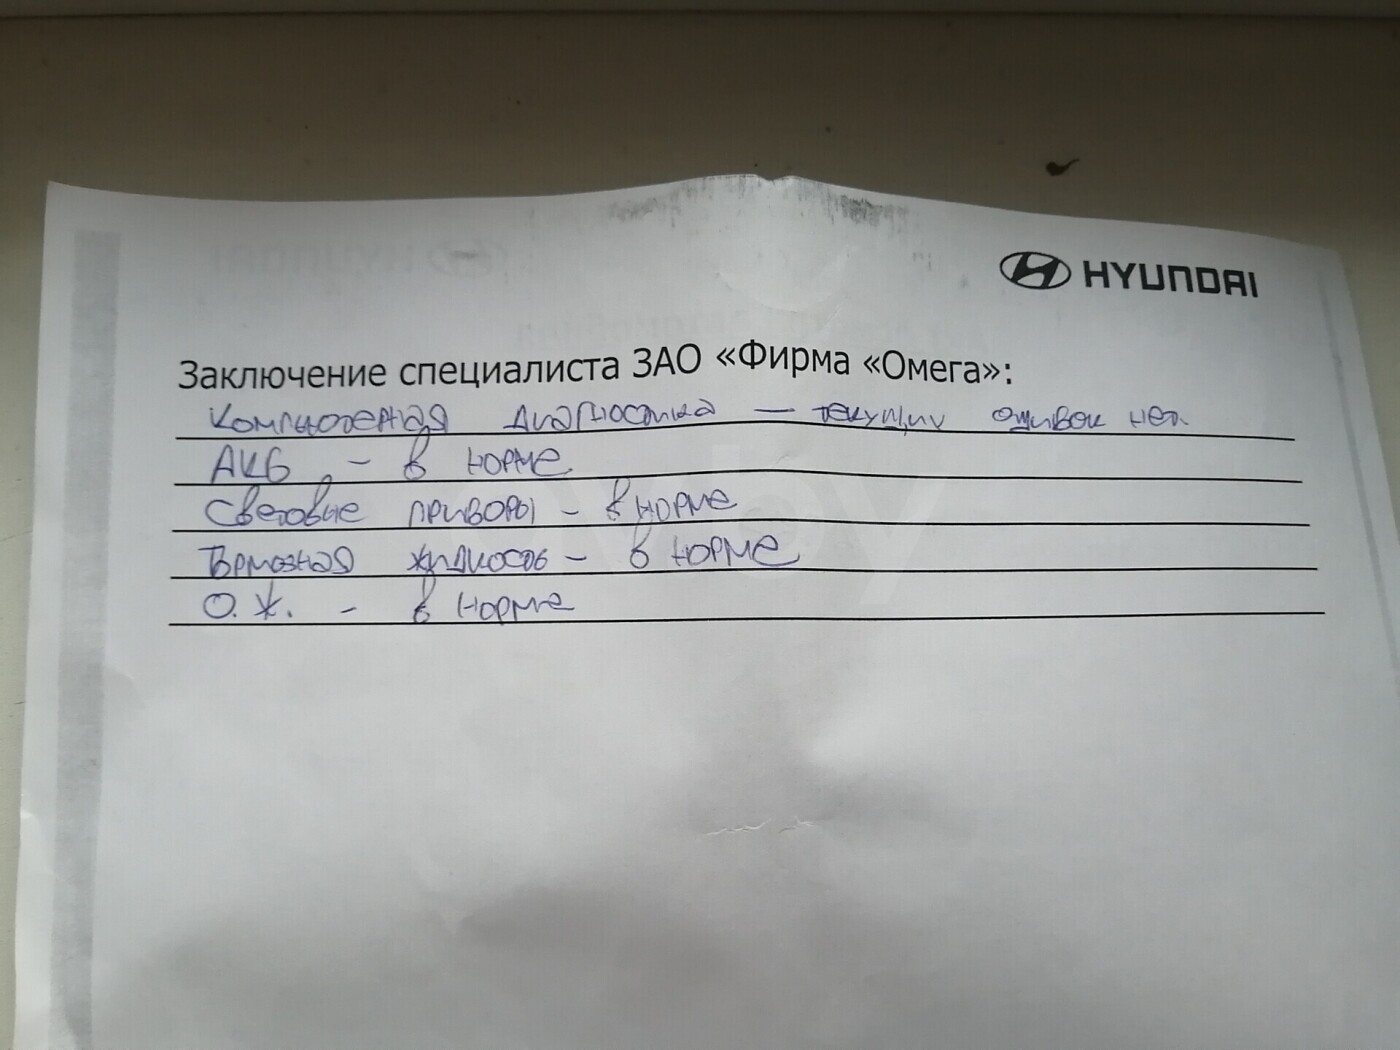 HYUNDAI
Заключение специалиста ЗАО «Фирма «Омега»:
Компьютерная диагностика — текущих ошибок нет.
АКБ - в норме
Световые приборы - в норме
Тормозная жидкость - в норме
О.Ж. - в норме